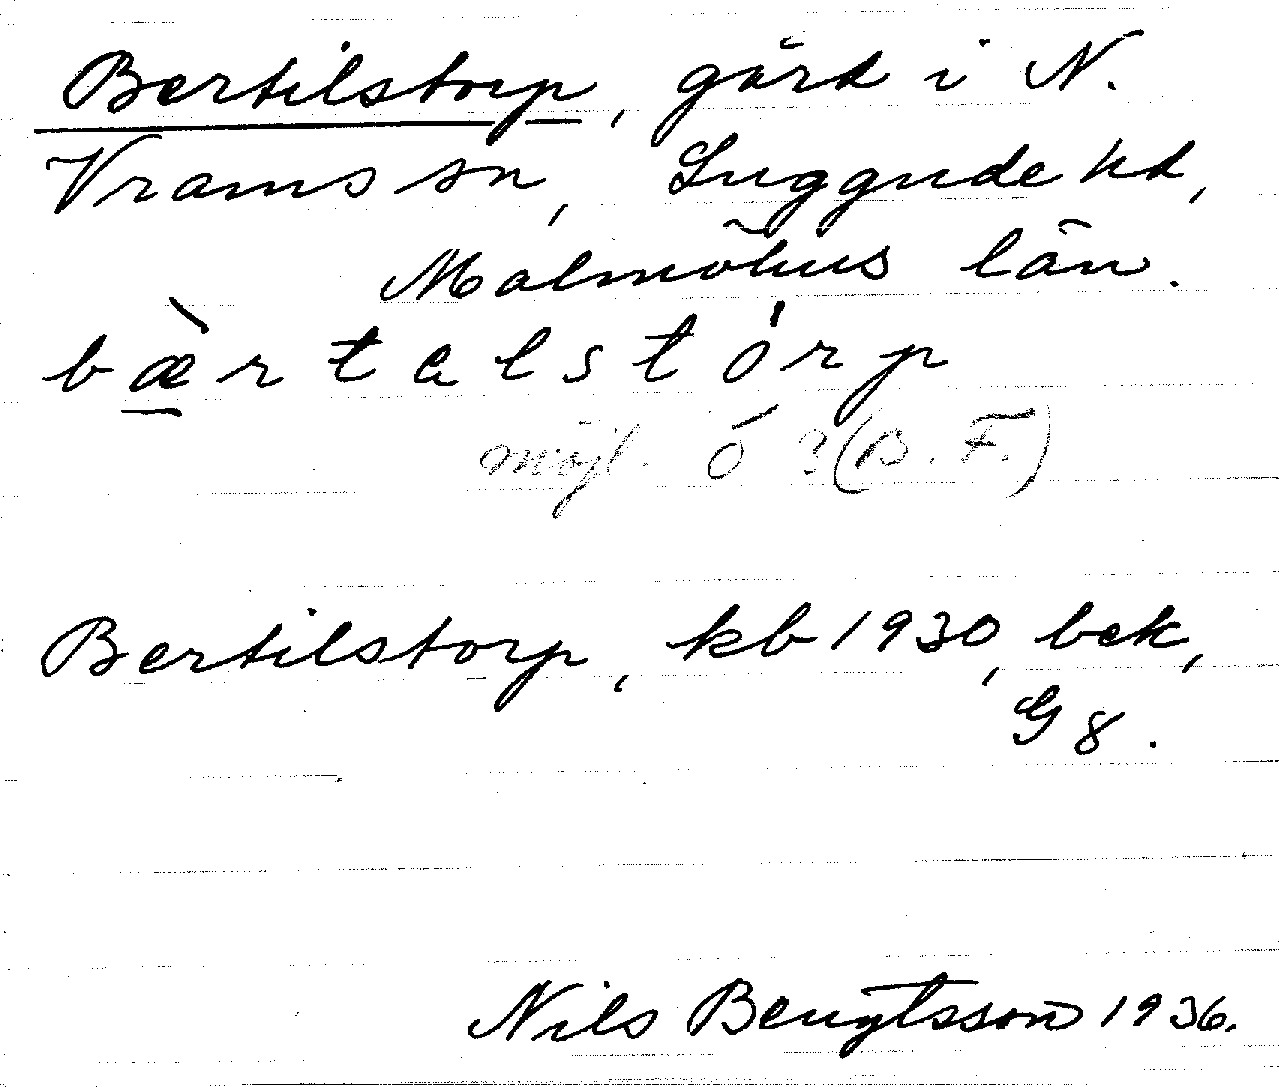 Bertilstorp, gård i N.
Vrams sn, Luggude hd,
Malmöhus län.
bæ̀rtalstórp
möjl. ó ? (B. F.)
Bertilstorp, kb 1930, bek,
G 8.
Nils Bengtsson 1936.